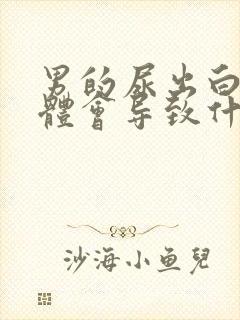 男的尿出白
體會导致什
沙海小鱼兒